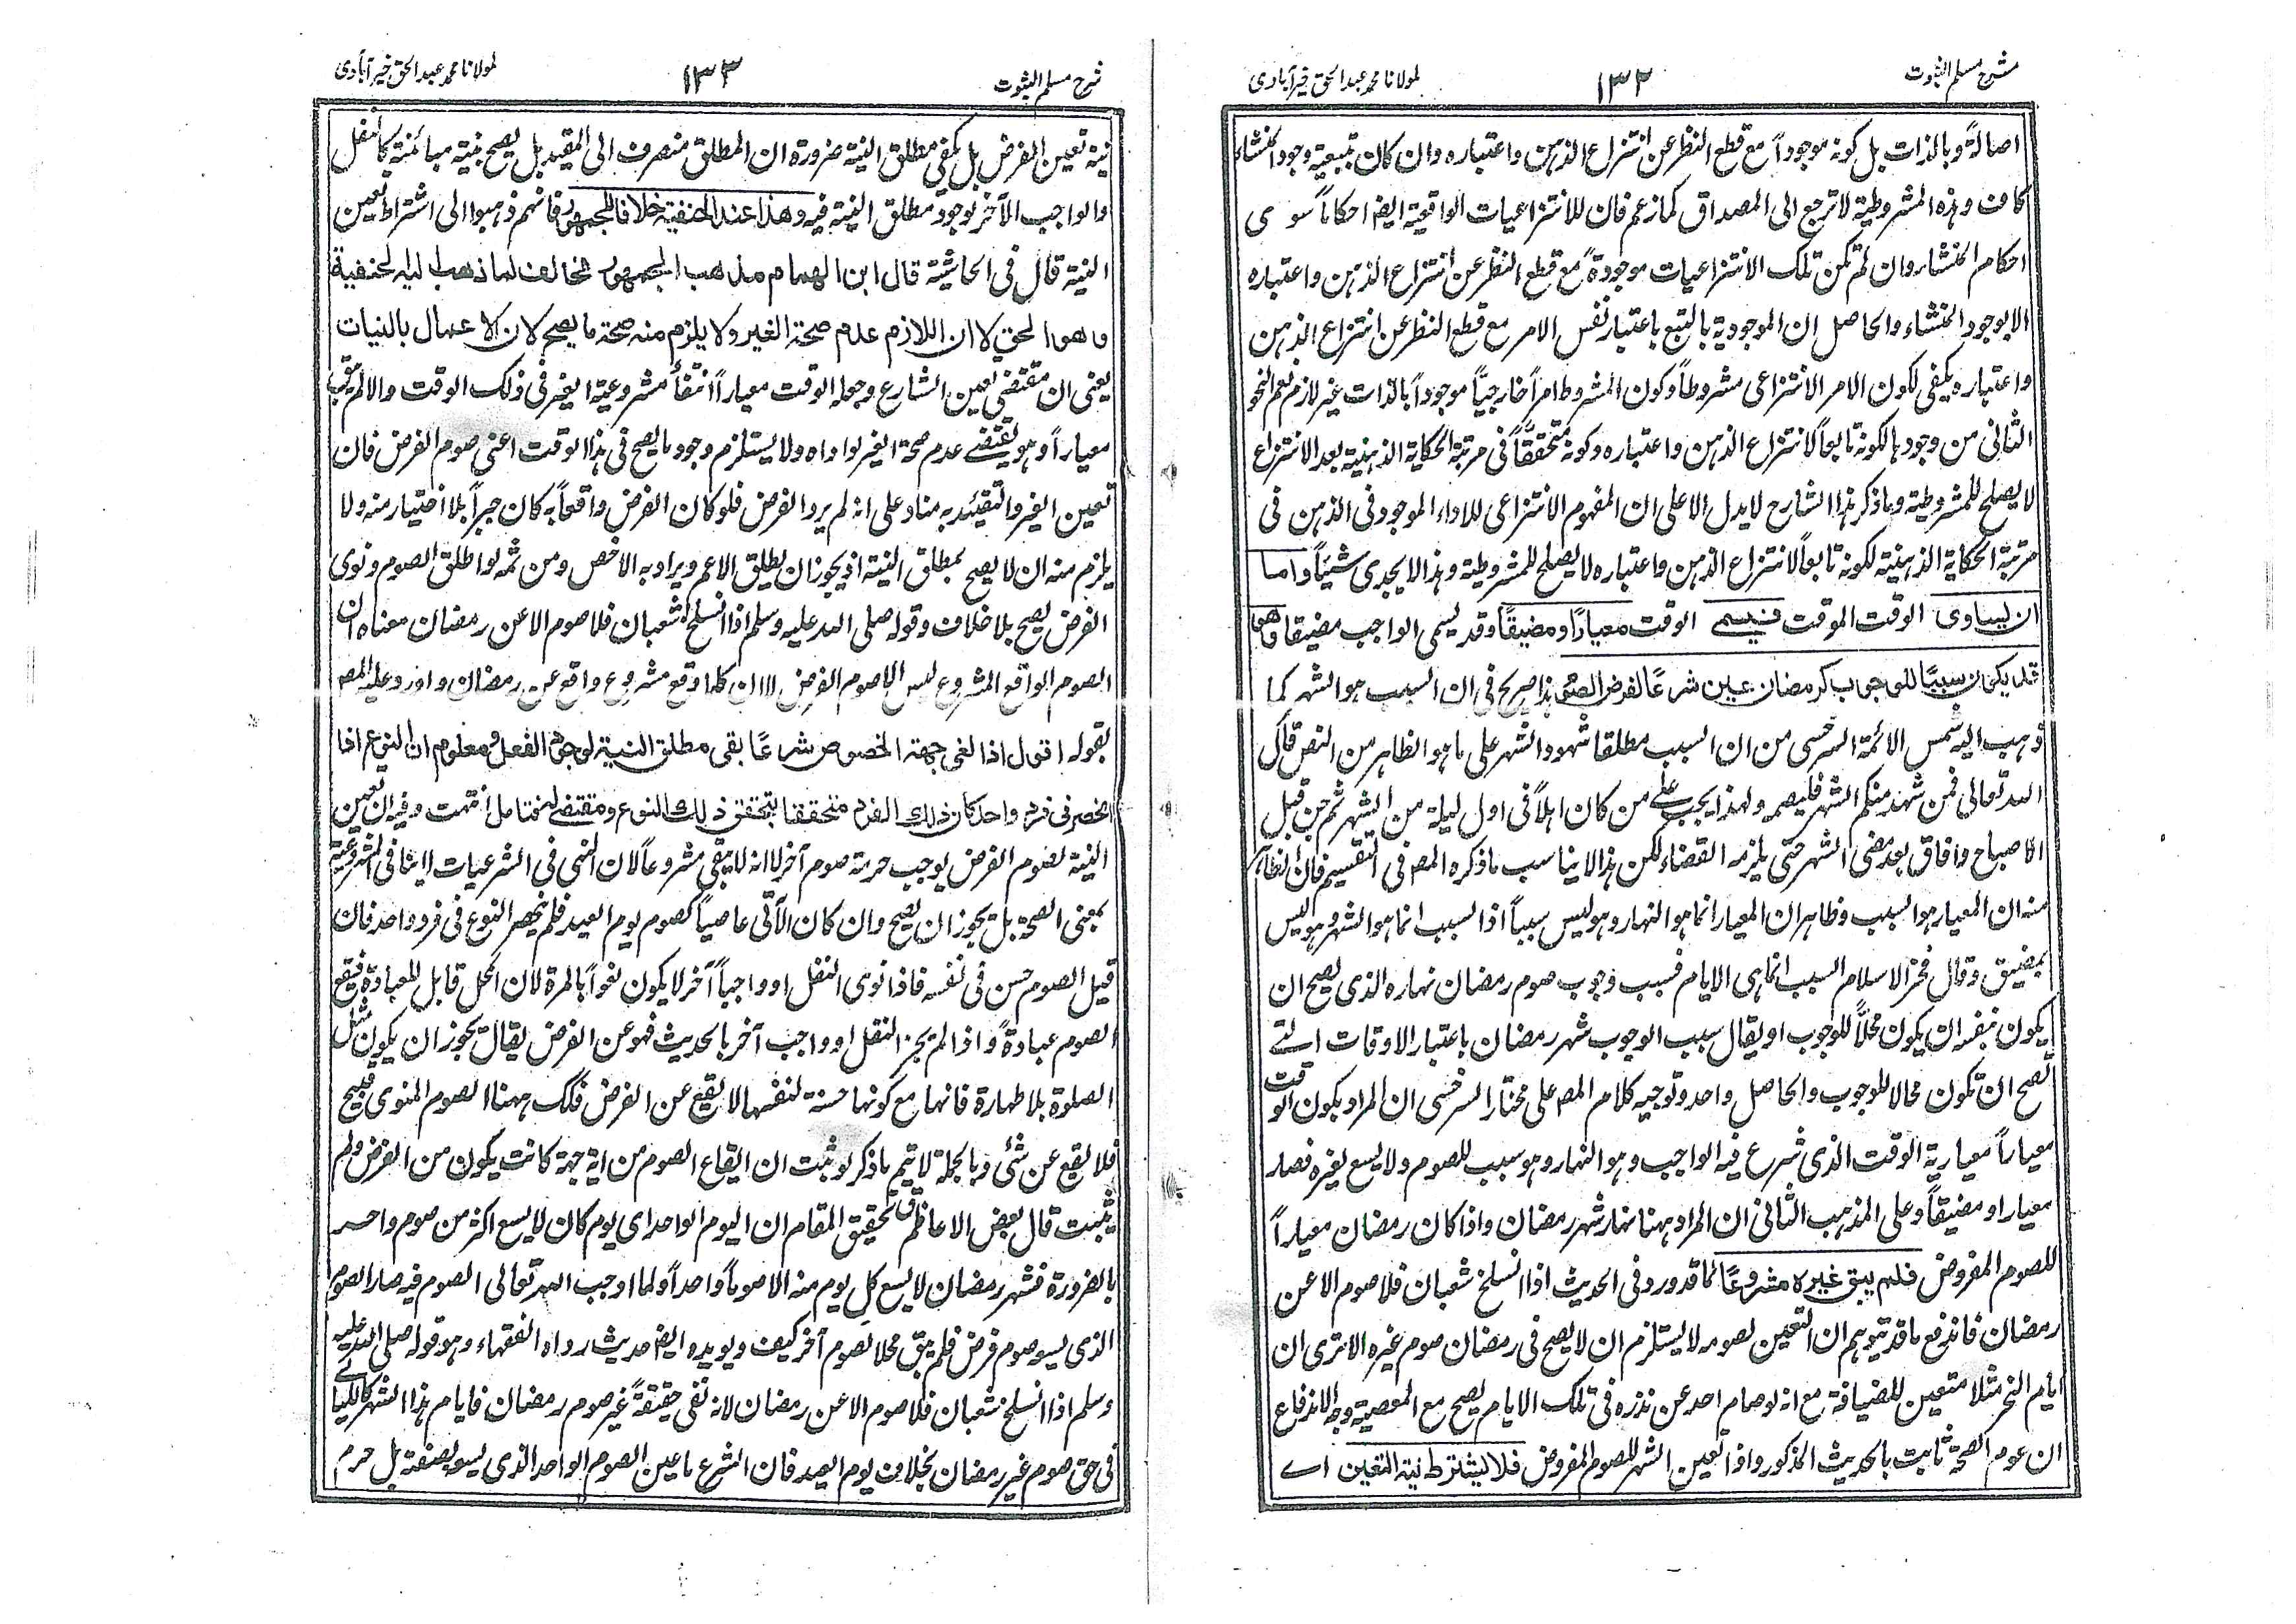 شرح مسلم الثبوت
١٣٢
لمولانا محمد عبد الحق خیرآبادی
اصالةً وبالذات بل كونه موجوداً مع قطع النظر عن انتزاع الذهن واعتباره وان كان بتبعية وجود المنشاء
كاف وهذه المشروطية لا ترجع الى المصداق كما زعم فان للانتزاعيات الواقعية ايضا احكاماً سوى
احكام المنشار وان لم تكن تلك الانتزاعيات موجودةً مع قطع النظر عن انتزاع الذهن واعتباره
الا بوجود المنشاء والحاصل ان الموجودية بالتبع باعتبار نفس الامر مع قطع النظر عن انتزاع الذهن
واعتباره يكفى لكون الامر الانتزاعى مشروطاً وكون المشروط امراً خارجيّاً موجوداً بالذات غير لازم نعم النحو
الثانى من وجودها لكونه تابعاً لانتزاع الذهن واعتباره وكونه متحققاً فى مرتبة الحكاية الذهنية بعد الانتزاع
لا يصلح للمشروطية وما ذكر هذا الشارح لا يدل الا على ان المفهوم الانتزاعى للاداء الموجود فى الذهن فى
مرتبة الحكاية الذهنية لكونه تابعاً لانتزاع الذهن واعتباره لا يصلح للمشروطية وهذا لا يجدى شيئاً واما
ان يساوى الوقت الموقت فيسمى الوقت معياراً ومضيقاً وقد يسمى الواجب مضيقا وهو
قد يكون سببًا للوجوب كرمضان عين شرعًا لفرض الصوم هذا صريح فى ان السبب هو الشهر كما
ذهب اليه شمس الائمة السرخسى من ان السبب مطلقا شهود الشهر على ما هو الظاهر من النص قال
الله تعالى فمن شهد منكم الشهر فليصمه ولهذا يجب على من كان اهلاً فى اول ليلة من الشهر ثم جن قبل
الاصباح وافاق بعد مضى الشهر حتى يلزمه القضاء لكن هذا لا يناسب ما ذكره المص فى التقسيم فان الظاهر
منه ان المعيار هو السبب وظاهر ان المعيار انما هو النهار وهو ليس سبباً اذ السبب انما هو الشهر وهو ليس
بمضيق وقال فخر الاسلام السبب انما هى الايام فسبب وجوب صوم رمضان نهاره الذى يصح ان
يكون بنفسه ان يكون محلاً للوجوب او يقال سبب الوجوب شهر رمضان باعتبار الاوقات التے
تصح ان تكون محالا للوجوب والحاصل واحد وتوجيه كلام المص على مختار السرخسى ان المراد بكون الوقت
معياراً معيارية الوقت الذى شرع فيه الواجب وهو النهار وهو سبب للصوم ولا يسع لغيره فصار
معيارا ومضيقاً وعلى المذهب الثانى ان المراد ههنا نهار شهر رمضان واذا كان رمضان معياراً
للصوم المفروض فلم يبق غيره مشروعًا لما قد ورد فى الحديث اذا انسلخ شعبان فلا صوم الا عن
رمضان فاندفع ما قد يتوهم ان التعين لصومه لا يستلزم ان لا يصح فى رمضان صوم غيره الا ترى ان
ايام النحر مثلا متعين للضيافة مع انه لو صام احد عن نذره فى تلك الايام يصح مع المعصية وجه الاندفاع
ان عدم الصحة ثابت بالحديث المذكور واذا تعين الشهر للصوم المفروض فلا يشترط نية التعين اے
شرح مسلم الثبوت
١٣٣
لمولانا محمد عبد الحق خیرآبادی
نية تعين الفرض بل يكفى مطلق النية ضرورة ان المطلق منصرف الى المقيد بل يصح بنية مبائنة كالنفل
والواجب الآخر لوجود مطلق النية فيه وهذا عند الحنفية خلافا للجمهور فانهم ذهبوا الى اشتراط تعين
النية قال فى الحاشية قال ابن الهمام مذهب الجمهور المخالف لما ذهب اليه الحنفية
وهو الحق لان اللازم عدم صحة الغير ولا يلزم منه صحة ما يصح لان الاعمال بالنيات
يعنى ان مقتضى تعين الشارع وجعله الوقت معياراً انتفاء مشروعية الغير فى ذلك الوقت والا لم يبق
معياراً وهو يقتضى عدم صحة الغير لو اداه ولا يستلزم وجود ما يصح فى هذا الوقت اعنى صوم الفرض فان
تعين الغير والتقيد به مناد على انه لم يرد الفرض فلو كان الفرض واقعاً به كان جبراً بلا اختيار منه ولا
يلزم منه ان لا يصح بمطلق النية اذ يجوز ان يطلق الاعم ويراد به الاخص ومن ثمه لو اطلق الصوم ونوى
الفرض يصح بلا خلاف وقوله صلى الله عليه وسلم اذا انسلخ شعبان فلا صوم الا عن رمضان معناه ان
الصوم الواقع المشروع ليس الا صوم الفرض لا ان كلما وقع مشروع واقع عن رمضان واورد عليه المص
بقوله اقول اذا لغى جهة الخصوص شرعًا بقى مطلق النية لوجود الفعل ومعلوم ان النوع اذا
انحصر فى فرد واحد كان ذلك الفرد متحققا بتحقق ذلك النوع ومقتضى له فتامل انتهت وفيه ان تعين
النية لصوم الفرض يوجب حرمة صوم آخر لا انه لا يبقى مشروعاً لان النهى فى الشرعيات لا ينافى المشروعية
بمعنى الصحة بل يجوز ان يصح وان كان الآتى عاصياً كصوم يوم العيد فلم ينحصر النوع فى فرد واحد فان
قيل الصوم حسن فى نفسه فاذا نوى النفل او واجباً آخر لا يكون لغواً بالمرة لان المحل قابل للعبادة فيقع
الصوم عبادةً واذا لم يجز النفل او واجب آخر بالحديث فهو عن الفرض يقال يجوز ان يكون مثل
الصلوة بلا طهارة فانها مع كونها حسنة لنفسها لا يقع عن الفرض فكك ههنا الصوم المنوى قبيح
فلا يقع عن شئى وبالجملة لا يتم ما ذكر لو ثبت ان ايقاع الصوم من اية جهة كانت يكون من الفرض ولم
يثبت قال بعض الاعاظم ق تحقيق المقام ان اليوم الواحد اى يوم كان لا يسع اكثر من صوم واحد
بالضرورة فشهر رمضان لا يسع كل يوم منه الا صوماً واحداً ولما اوجب الله تعالى الصوم فيه صار الصوم
الذى يسعه صوم فرض فلم يبق محلا لصوم آخر كيف ويويده ايضا حديث رواه الفقهاء وهو قوله صلى الله عليه
وسلم اذا انسلخ شعبان فلا صوم الا عن رمضان لانه نفى حقيقةً غير صوم رمضان فايام هذا الشهر كالليالے
فى حق صوم غير رمضان بخلاف يوم العيد فان الشرع ما عين الصوم الواحد الذى يسعه بصفة بل حرم